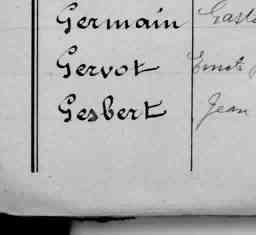 Germain Gast
Gervot Ernest
Gesbert Jean